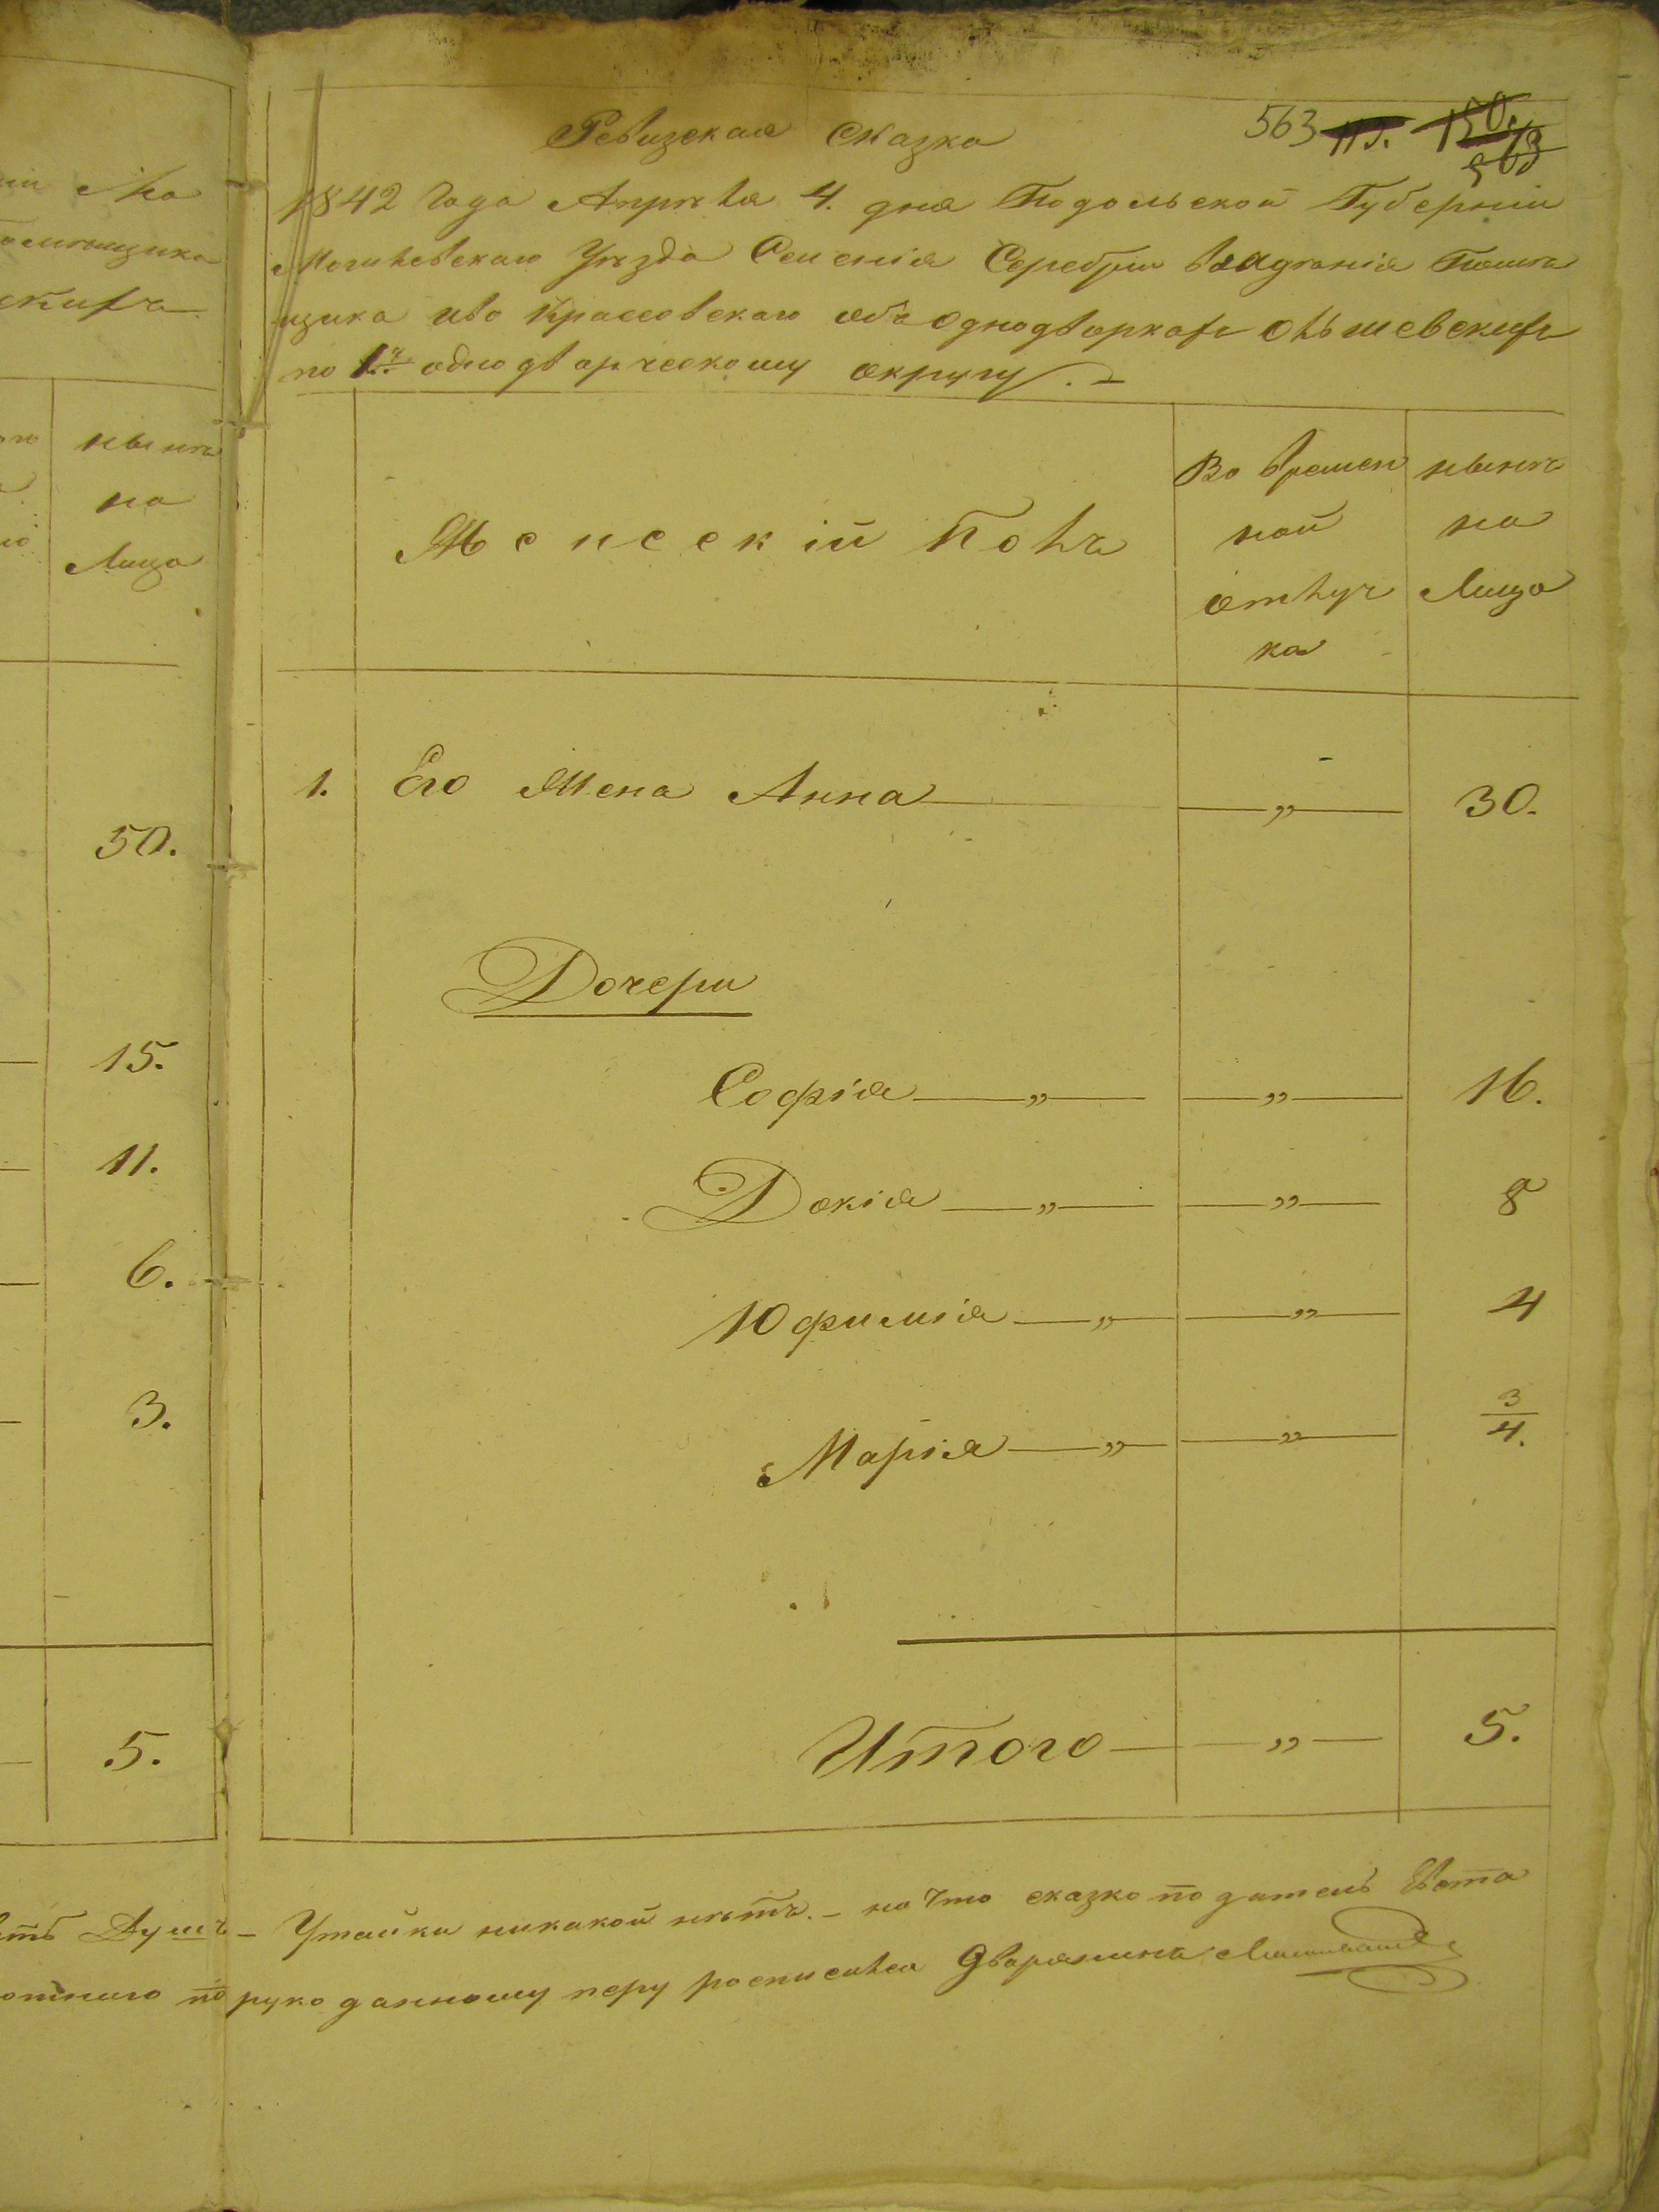 Ревизская Сказка
563 115. 150. 563
1842 Года Апрѣля 4. дня Подольской Губерніи
Могилевскаго Уѣзда Селенія Серебріи владѣнія Помѣ
щика Иво Крассовскаго объ Однодворкахъ Ольшевскихъ
по 1.му однодворческому округу.
ніи Мо
помѣщика
скихъ
нынѣ
на
Лицо
Женсскій Полъ
Во времен
ной
отлуч
ка
нынѣ
на
Лицо
1. Его Жена Анна — „ — 30.
50.
Дочери
15.
Софія — „ — — „ — 16.
11.
Докія — „ — — „ — 8
6.
Юфимія — „ — — „ — 4
3.
Марія — „ — — „ — 3/4.
5.
Итого — — „ — 5.
Душъ – Утайки никакой нѣтъ. – на что сказко податель
по руко данному перу росписался Дворянинъ